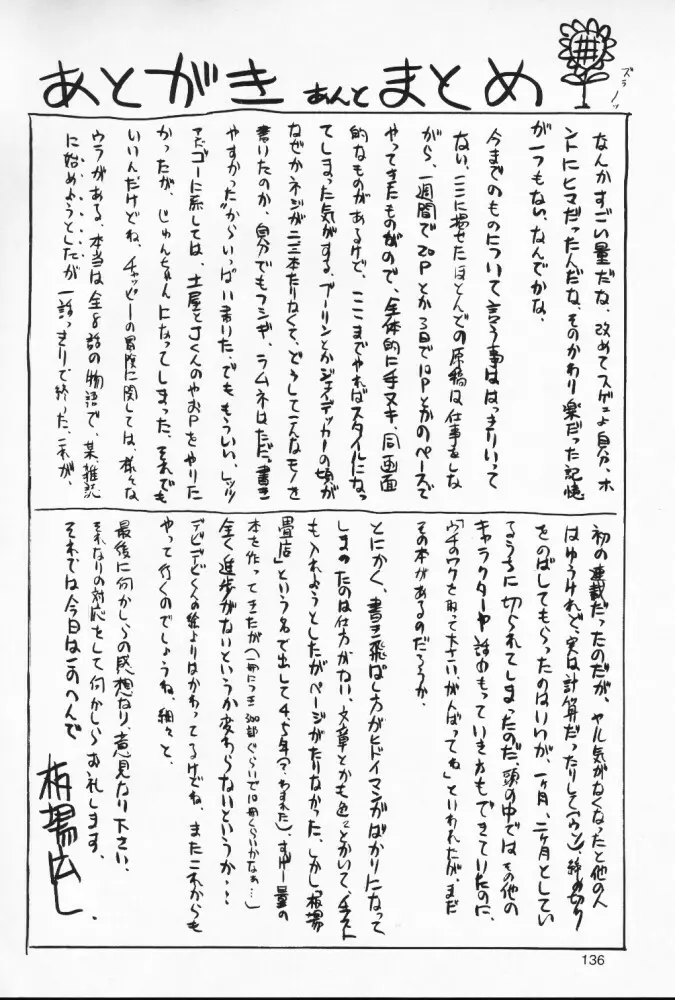 あとがき あんど まとめ
ズラノッ
なんかすごい量だな、改めてスゲェよ自分、ホ
ントにヒマだった人だな、そのかわり楽だった記憶
が一つもない、なんでかな、
今までのものについて言う事ははっきりいって
ない、ここに揚せたほとんどの原稿は仕事をしな
がら、一週間で20Pとか3日で12Pとかのペースで
やってきたものなので、全体的に手ヌキ、同画面
的なものがあるけど、ここまでやればスタイルになっ
てしまった気がする、ブーリンとかジェイデッカーの頃が
なぜかネジが二三本たりなくて、どうしてこんなモノを
書いたのか、自分でもフシギ、ラムネはただ“書き
やすかった”からいっぱい書いた、でももういい、レッツ
アゴーに系しては、土屋とJくんのやおPをやりた
かったが、じゅんちゃんになってしまった、それでも
いいんだけどね、チャッピーの冒険に関しては、様々な
ウラがある、本当は全8話の物語で、某、雑誌
に始めようとしたが一話っきりで終った、これが、
初の連載だったのだが、ヤル気がなくなったと他の人
はゆうけれど、実は計算だったりして(ウソ)、締め切り
をのばしてもらったのはいいが、一ヶ月、二ヶ月としてい
るうちに切られてしまったのだ、頭の中ではその他の
キャラクターや話のもっていき方もできていたのに、
「ウチのワクを取って下さい、がんばってね」といわれたが、まだ
その本があるのだろうか、
とにかく、書き飛ばし方がヒドイマンガばかりになって
しまったのは仕方がない、文章とかも色々とかいて、イラスト
も入れようとしたがページがたりなかった、しかし「板場
畳店」という名で出して4、5年(?、わすれた)、すげー量の
本を作ってきたが(一冊につき300部ぐらいで10冊くらいかなぁ…)
全く進歩がないというか変わらないというか・・・
デビデビくんの絵よりはかわってるけどね、またこれからも
やって行くのでしょうね、細々と、
最後に何かしらの感想なり、意見なり下さい、
それなりの対応をして何かしらお礼します、
それでは今日はこのへんで
板場広し、
136